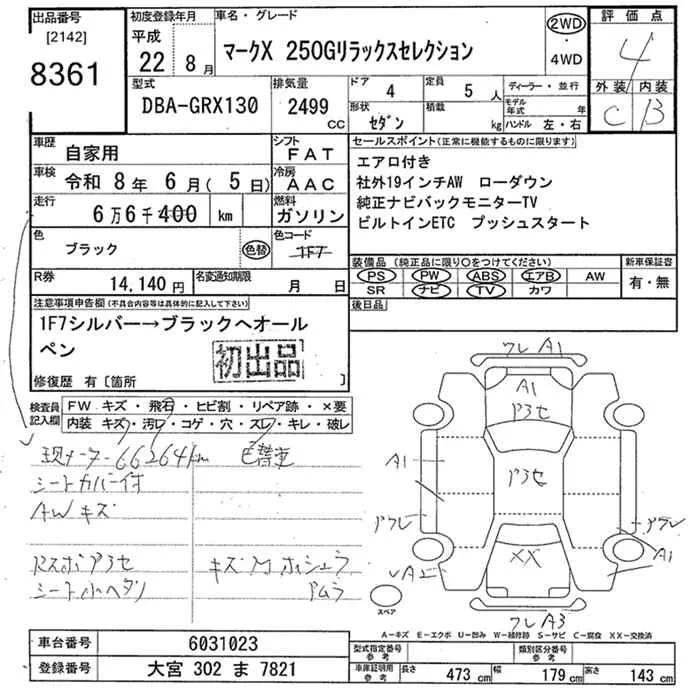 出品番号 初度登録年月 車名・グレード 2WD 評価点
[2142] 平成 マークX 250Gリラックスセレクション ・ 4
8361 22 8月 4WD 外装 内装
型式 排気量 ドア 4 定員 5人 ディーラー・並行 C B
DBA-GRX130 2499 CC 形状 セダン 積載 kg モデル年式 年 ハンドル 左・右
車歴 自家用 シフト FAT セールスポイント(正常に機能するものに限ります)
車検 令和 8年 6月(5日) 冷房 AAC エアロ付き
社外19インチAW ローダウン
走行 6万6千400 km 燃料 ガソリン 純正ナビバックモニターTV
ビルトインETC プッシュスタート
色 ブラック 色替 色コード 1F7
装備品(純正品に限り〇をつけてください) 新車保証書
PS PW ABS エアB AW 有・無
R券 14,140円 名変通知期限 月 日 SR ナビ TV カワ
注意事項申告欄(不具合内容等は具体的に記入して下さい) 後日品
1F7シルバー→ブラックへオール
ペン
初出品
修復歴 有〔箇所 〕
検査員記入欄 FW キズ・飛石・ヒビ割・リペア跡・×要
内装 キズ・汚レ・コゲ・穴・スレ・キレ・破レ
現メーター66264km 色替車
シートカバー付
AWキズ
Rスポアラセ キズMホシュウ
シート小ヘタリ アムラ
ワレ A1
A1
アラセ
A1
アラセ
アワレ
A1
XX
A2
ワレA3
スペア
A-キズ E-エクボ U-凹み W-補修跡 S-サビ C-腐食 XX-交換済
車台番号 6031023 型式指定番号 参考 類別区分番号 参考
登録番号 大宮 302 ま 7821 車庫証明用 参考 長さ 473 cm 幅 179 cm 高さ 143 cm